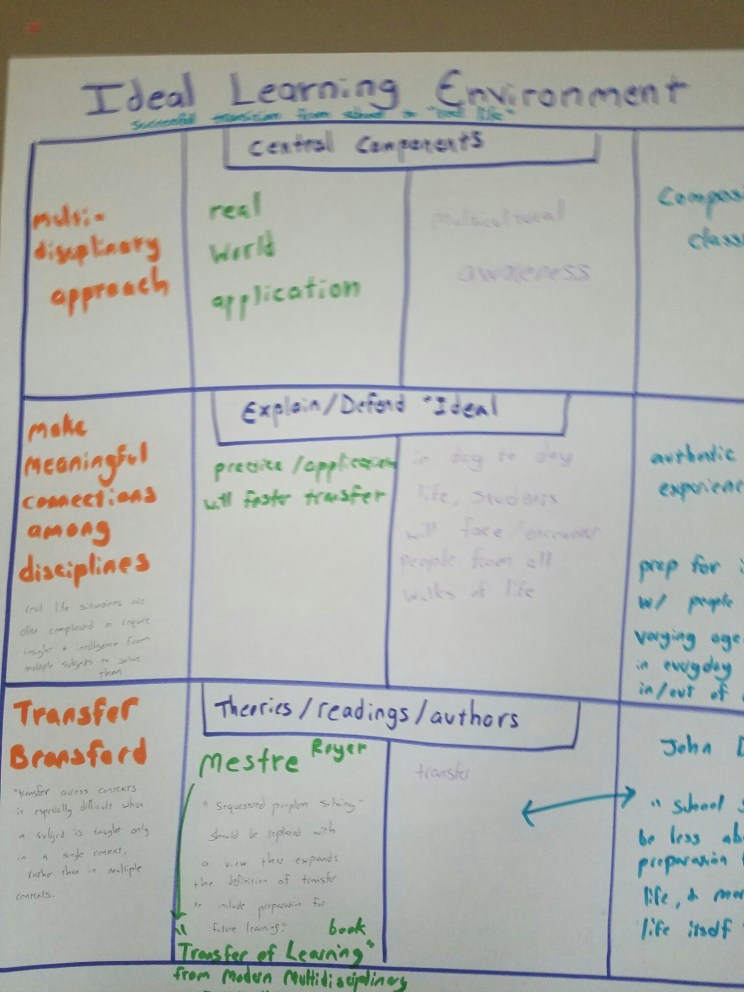 Ideal Learning Environment
successful transition from school to "real life"
Central Components
multi-
disciplinary
approach
real
World
application
multicultural
awareness
Compos
class
Explain/Defend "Ideal
make
meaningful
connections
among
disciplines
real life situations are
often complicated & require
insight & intelligence from
multiple subjects to solve
them
practice/application
will foster transfer
in day to day
life, students
will face/encounter
people from all
walks of life
authentic
experienc
prep for i
w/ people
varying age
in everyday
in/out of
Theories/readings/authors
Transfer
Bransford
"transfer across contexts
is especially difficult when
a subject is taught only
in a single context,
rather than in multiple
contexts.
Mestre Royer
"Sequestered problem solving"
should be replaced with
a view that expands
the definition of transfer
to include preparation for
future learning."
book
"Transfer of Learning"
from Modern Multidisciplinary
transfer
John D
"School s
be less ab
preparation
life, & mor
life itself